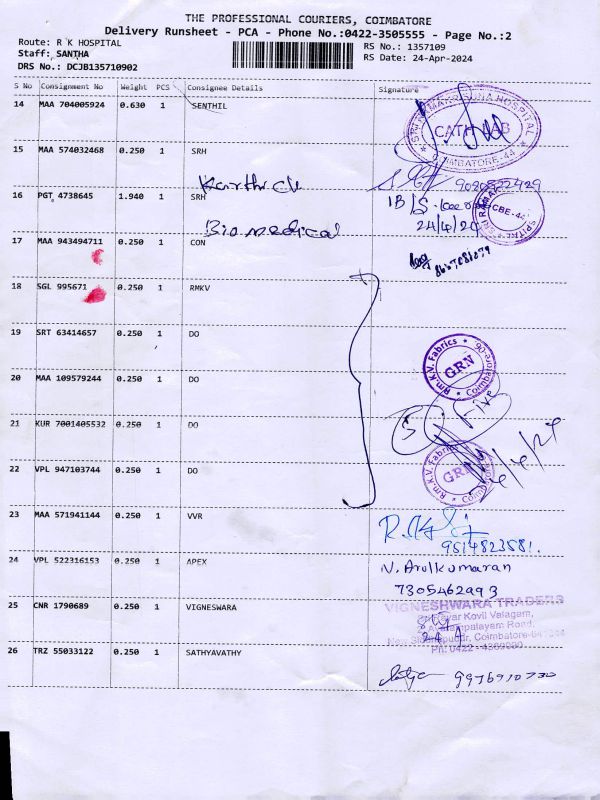 THE PROFESSIONAL COURIERS, COIMBATORE
Delivery Runsheet - PCA - Phone No.:0422-3505555 - Page No.:2
Route: R K HOSPITAL
RS No.: 1357109
Staff: SANTHA
RS Date: 24-Apr-2024
DRS No.: DCJB135710902
S No Consignment No Weight PCS Consignee Details Signature
14 MAA 704005924 0.630 1 SENTHIL
CATH LAB
COIMBATORE-44
15 MAA 574032468 0.250 1 SRH
Karthick
16 PGT 4738645 1.940 1 SRH
CBE-44
Biomedical
24/4/24
17 MAA 943494711 0.250 1 CON
18 SGL 995671 0.250 1 RMKV
19 SRT 63414657 0.250 1 DO
Rm.K.V. Fabrics
GRN
20 MAA 109579244 0.250 1 DO
Five
21 KUR 7001405532 0.250 1 DO
22 VPL 947103744 0.250 1 DO
Rm.K.V. Fabrics
GRN
23 MAA 571941144 0.250 1 VVR
9514823581.
24 VPL 522316153 0.250 1 APEX
N. Arulkumaran
7305462993
25 CNR 1790689 0.250 1 VIGNESWARA
VIGNESHWARA TRADERS
Kovil Valagam,
Road,
Coimbatore-
26 TRZ 55033122 0.250 1 SATHYAVATHY
9976910730